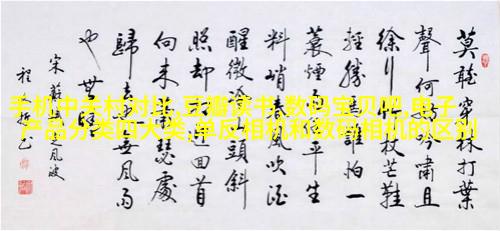 莫聽穿林打葉
聲何妨吟嘯且
徐行竹杖芒鞋
輕勝馬誰怕一
蓑煙雨任平生
料峭春風吹酒
醒微冷山頭斜
照却相迎回首
向来蕭瑟處
歸去也無風雨
也無晴
宋蘇軾定風波
手机中关村对比,豆瓣读书,数码宝贝吧,电子
产品分类四大类,单反相机和数码相机的区别